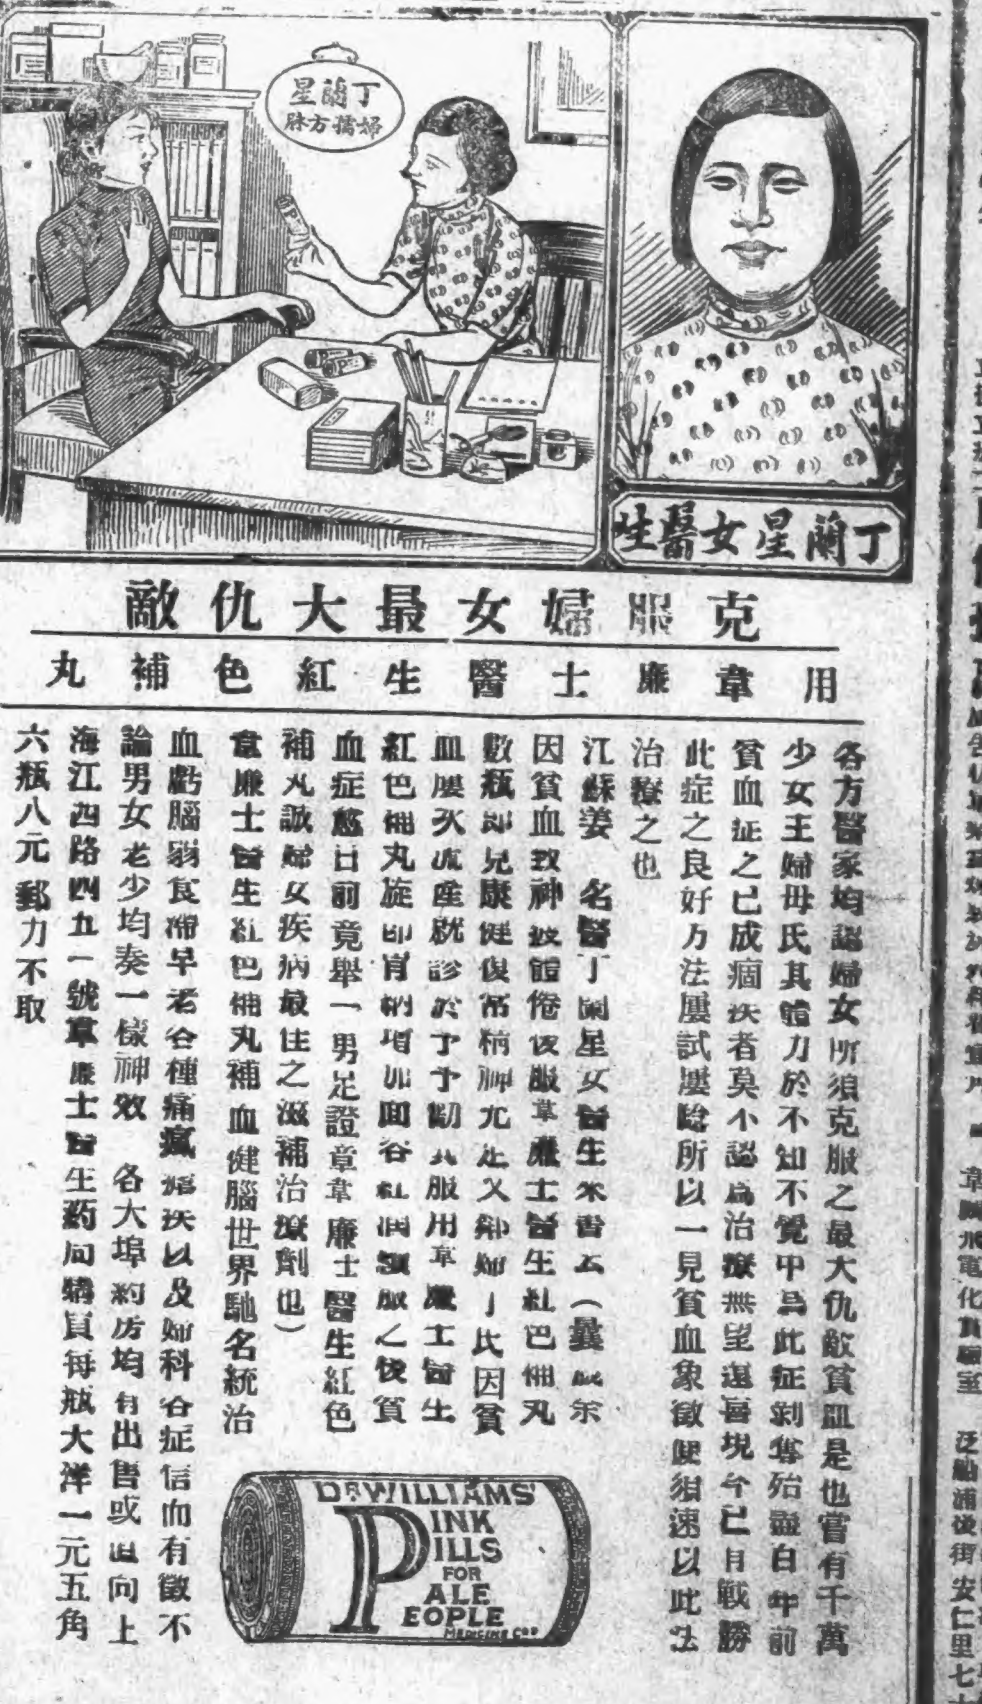 丁蘭星
婦擣方脉
丁蘭星女醫生
克服婦女最大仇敵
用韋廉士醫生紅色補丸
各方醫家均認婦女所須克服之最大仇敵貧血是也嘗有千萬
少女主婦母氏其體力於不知不覺中為此症剝奪殆盡百年前
貧血症之已成痼疾者莫不認為治療無望還喜現今已有戰勝
此症之良好方法屢試屢驗所以一見貧血象徵便須速以此法
治療之也
江蘇姜 名醫丁蘭星女醫生來書云(曩
因貧血致神疲體倦後服韋廉士醫生紅色補丸
數瓶即見康健復常精神尤足又鄰婦丁氏因貧
血屢次流產就診於予予勸其服用韋廉士醫生
紅色補丸旋即胃納增加面容紅潤 服之後貧
血症愈日前竟舉一男足證章韋廉士醫生紅色
補丸誠婦女疾病最佳之滋補治療劑也)
韋廉士醫生紅色補丸補血健腦世界馳名統治
血虧腦弱食滯早老各種痛瘋 以及婦科各症信而有徵不
論男女老少均奏一樣神效 各大埠藥房均有出售或 向上
海江西路四五一號韋廉士醫生药局購買每瓶大洋一元五角
六瓶八元郵力不取
DR. WILLIAMS'
PINK
PILLS
FOR
PALE
PEOPLE
MEDICINE CO
安仁里七